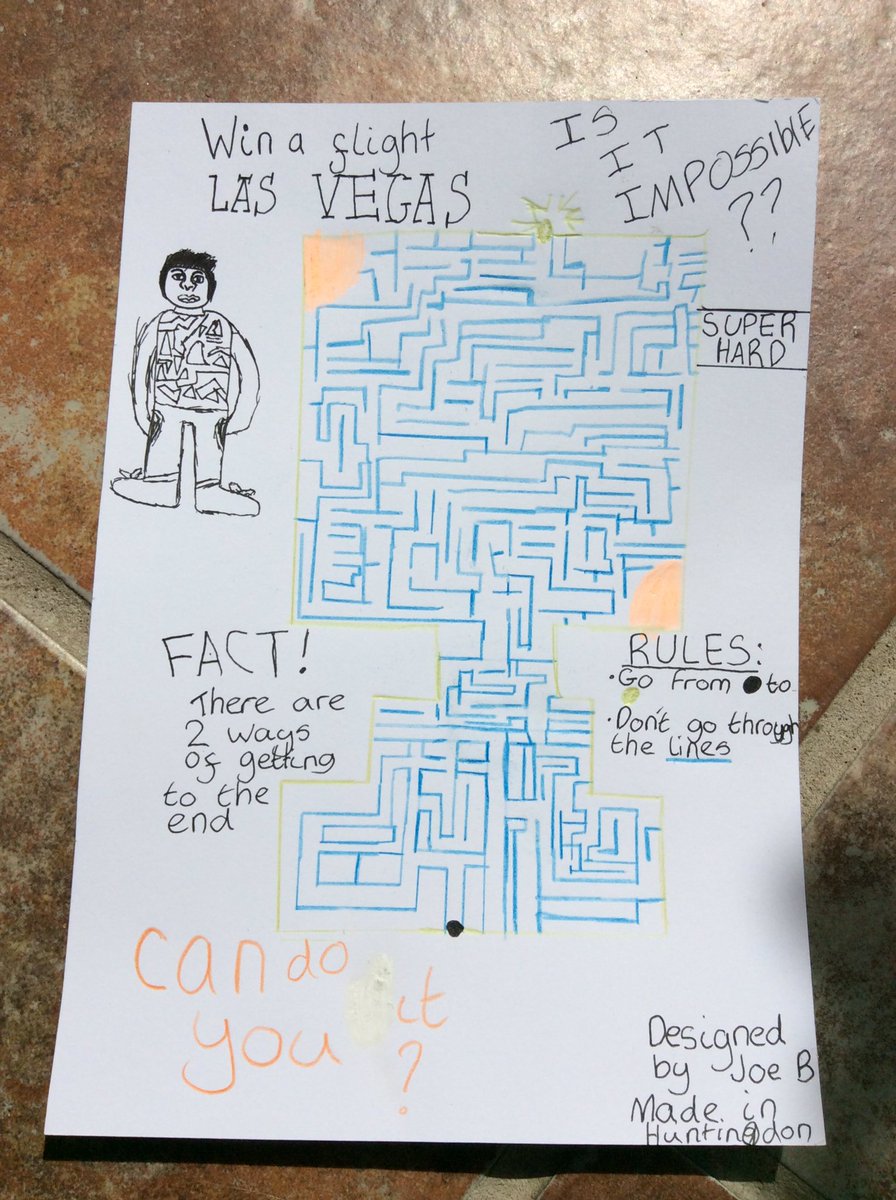 Win a flight
LAS VEGAS
IS
IT
IMPOSSIBLE
??
SUPER
HARD
FACT!
There are
2 ways
of getting
to the
end
RULES:
·Go from ●to
·Don't go through
the lines
can do
you it
?
Designed
by Joe B
Made in
Huntingdon